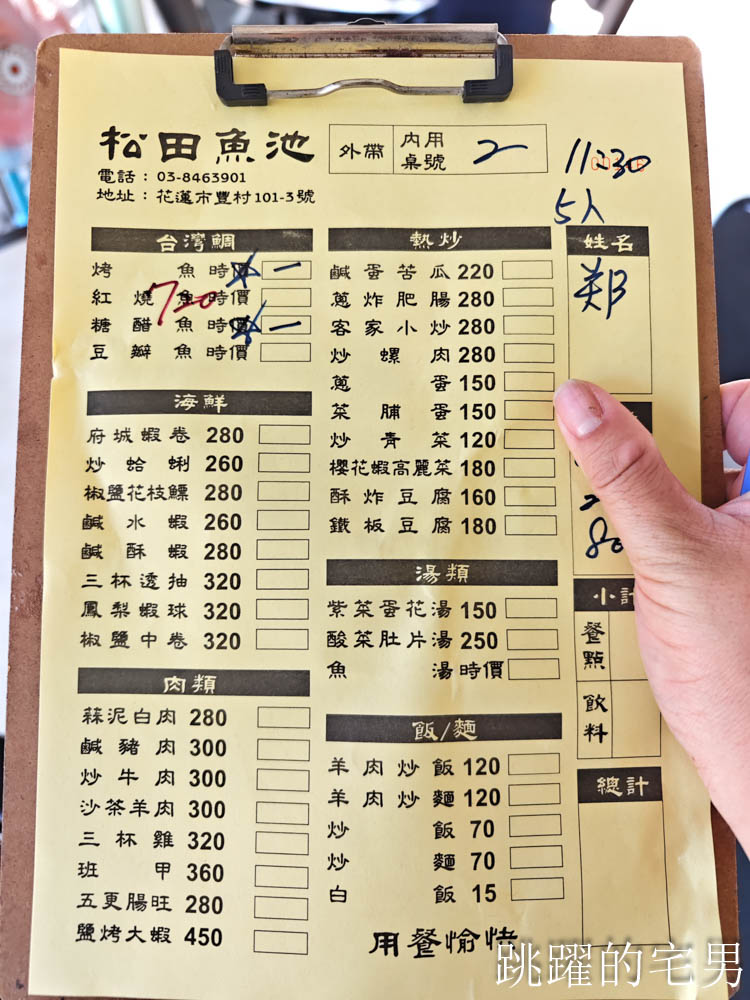 松田魚池
電話：03-8463901
地址：花蓮市豐村101-3號
外帶 內用桌號 2
11:30
5人
姓名
郑
台灣鯛
烤魚 時價 一
紅燒魚 時價
720
糖醋魚 時價 一
豆瓣魚 時價
海鮮
府城蝦卷 280
炒蛤蜊 260
椒鹽花枝鰾 280
鹹水蝦 260
鹹酥蝦 280
三杯透抽 320
鳳梨蝦球 320
椒鹽中卷 320
肉類
蒜泥白肉 280
鹹豬肉 300
炒牛肉 300
沙茶羊肉 300
三杯雞 320
班甲 360
五更腸旺 280
鹽烤大蝦 450
熱炒
鹹蛋苦瓜 220
蔥炸肥腸 280
客家小炒 280
炒螺肉 280
蔥蛋 150
菜脯蛋 150
炒青菜 120
櫻花蝦高麗菜 180
酥炸豆腐 160
鐵板豆腐 180
湯類
紫菜蛋花湯 150
酸菜肚片湯 250
魚湯 時價
飯/麵
羊肉炒飯 120
羊肉炒麵 120
炒飯 70
炒麵 70
白飯 15
小計
餐點
飲料
總計
用餐愉快
跳躍的宅男